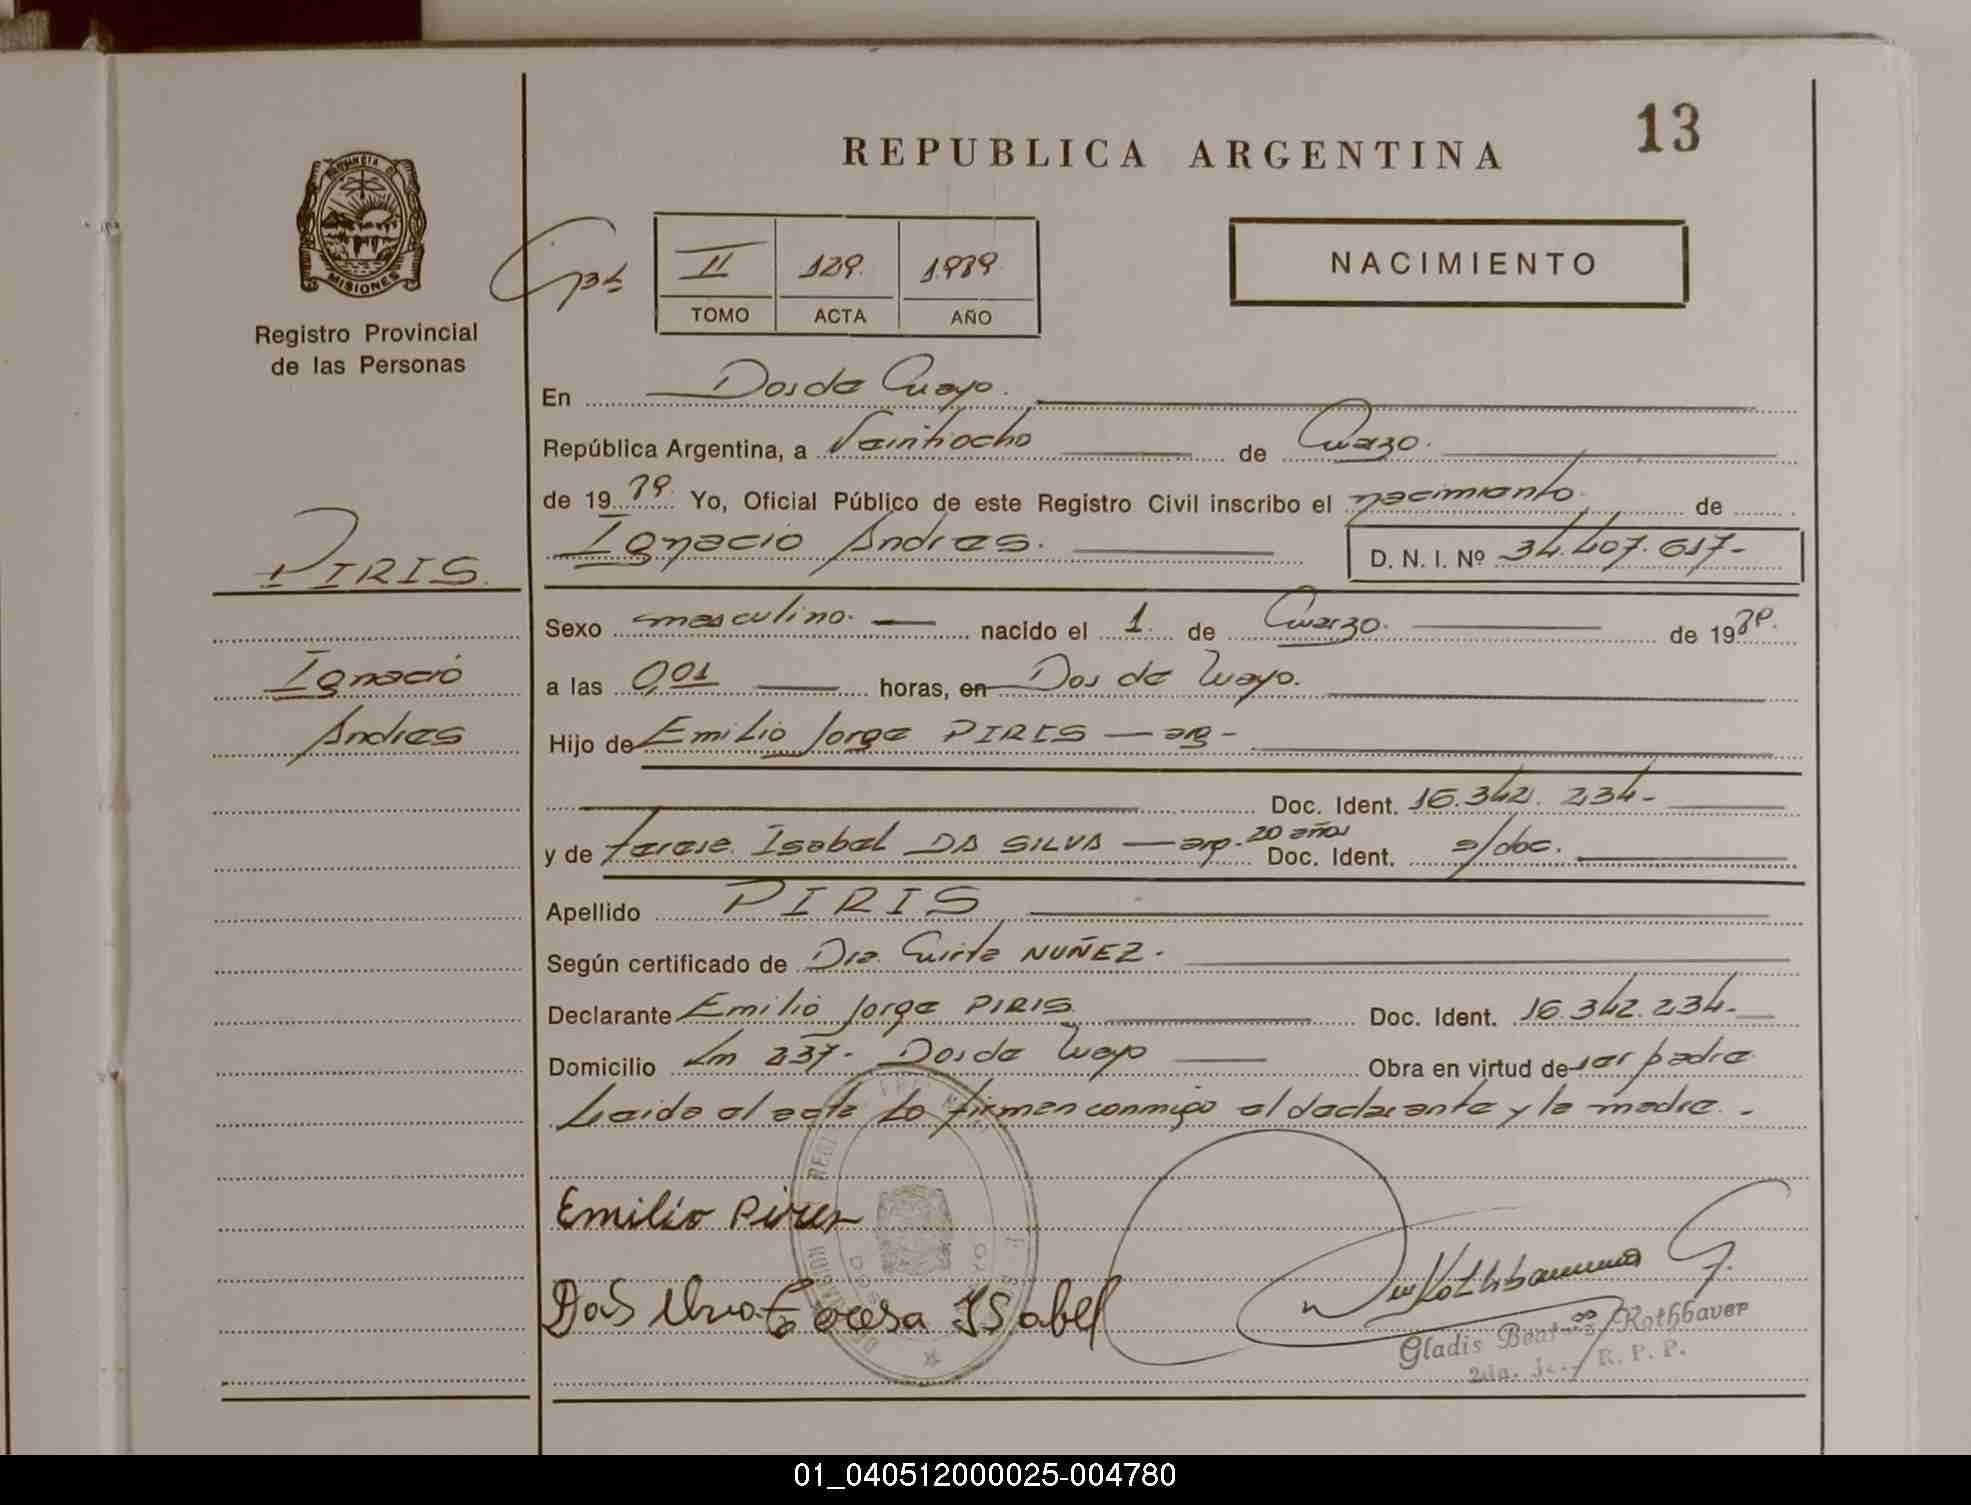 13
REPUBLICA ARGENTINA
PROVINCIA D
MISIONES
Registro Provincial
de las Personas
II 129. 1.989
TOMO ACTA AÑO
NACIMIENTO
En Dos de Mayo.
República Argentina, a Veintiocho de Marzo.
de 19 89. Yo, Oficial Público de este Registro Civil inscribo el nacimiento. de
Ignacio Andres. D. N. I. Nº 34.407.617-
PIRIS.
Ignacio
Andres
Sexo masculino. nacido el 1 de Marzo. de 19 89.
a las 0,01 horas, en Dos de Mayo.
Hijo de Emilio Jorge PIRIS — arg-
Doc. Ident. 16.342.234-
y de Teresa Isabel DA SILVA — arg. 20 años Doc. Ident. s/doc.
Apellido PIRIS
Según certificado de Dra. Mirta NUÑEZ.
Declarante Emilio Jorge PIRIS Doc. Ident. 16.342.234-
Domicilio Km 237- Dos de Mayo Obra en virtud de ser padre
Leida el acta lo firman conmigo el declarante y la madre.-
Emilio Pires
Da Silva Teresa Isabel
Gladis Beatriz Rothbaver
R. P. P.
01_040512000025-004780